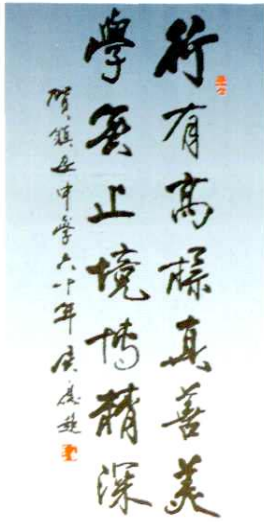 行有高標真善美
學無止境博精深
賀鎮中學六十年